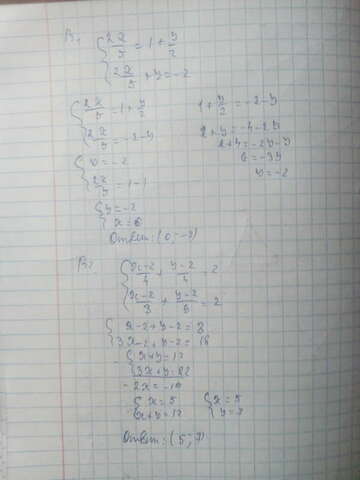 B1
{ 2x/5 = 1 + y/2
{ 2x/5 + y = -2
{ 2x/5 = 1 + y/2
{ 2x/5 = -2 - y
1 + y/2 = -2 - y
2 + y = -4 - 2y
2 + 4 = -2y - y
6 = -3y
y = -2
{ y = -2
{ 2x/5 = 1 - 1
{ y = -2
{ x = 0
Ответ: (0; -2)
B2
{ x-2/4 + y-2/4 = 2
{ x-2/3 + y-2/9 = 2
{ x - 2 + y - 2 = 8
{ 3x - 2 + y - 2 = 18
{ x + y = 12
{ 3x + y = 22
-2x = -10
{ x = 5
{ x + y = 12
{ x = 5
{ y = 7
Ответ: (5; 7)